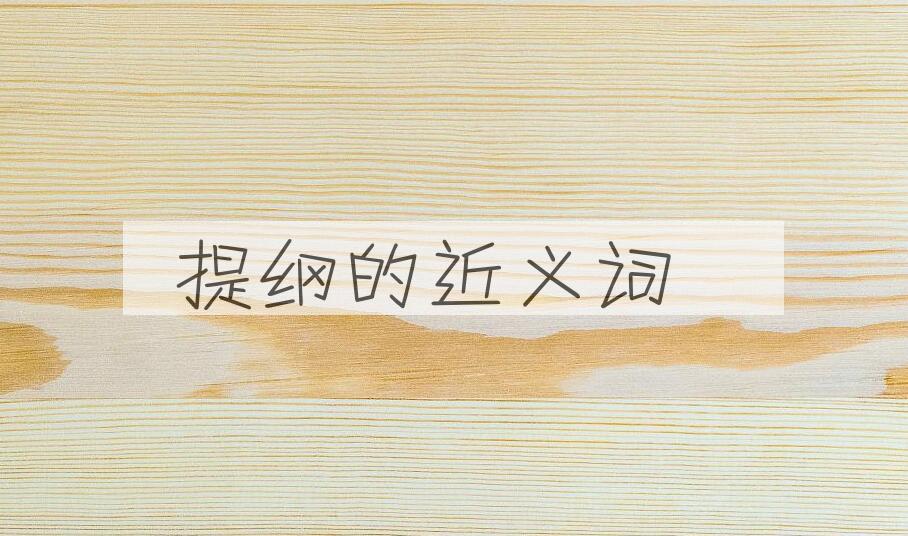 提纲的近义词